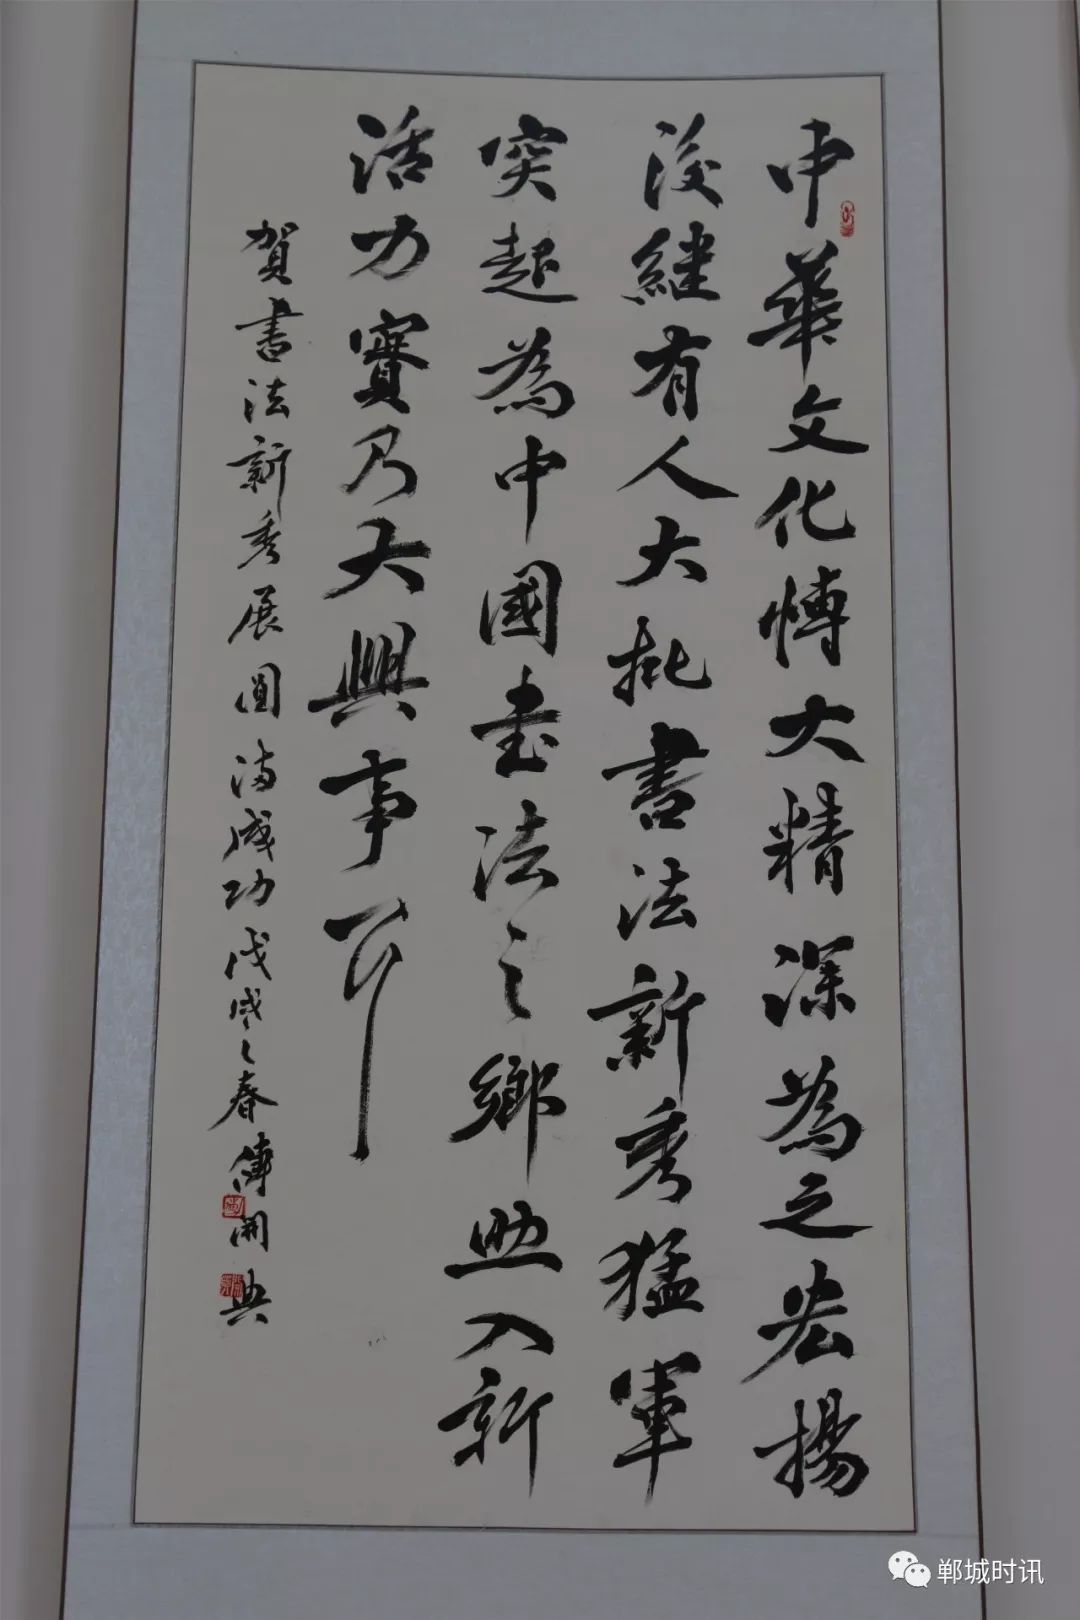 中華文化博大精深為之宏揚
後继有人大批書法新秀猛軍
突起為中國書法之鄉助入新
活力實乃大興事也
賀書法新秀展圓满成功戊戌之春傅開典
郸城时讯